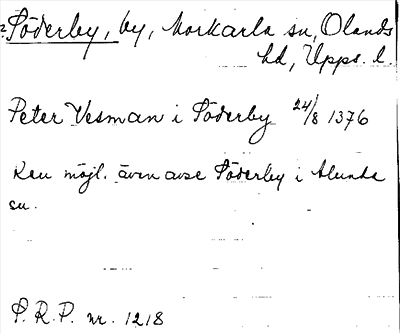 ? Söderby, by, Morkarla sn, Olands
hd, Upps. l.
Peter Vesman i Söderby 24/8 1376
Kan möjl. även avse Söderby i Alunda
sn.
S. R. P. nr. 1218